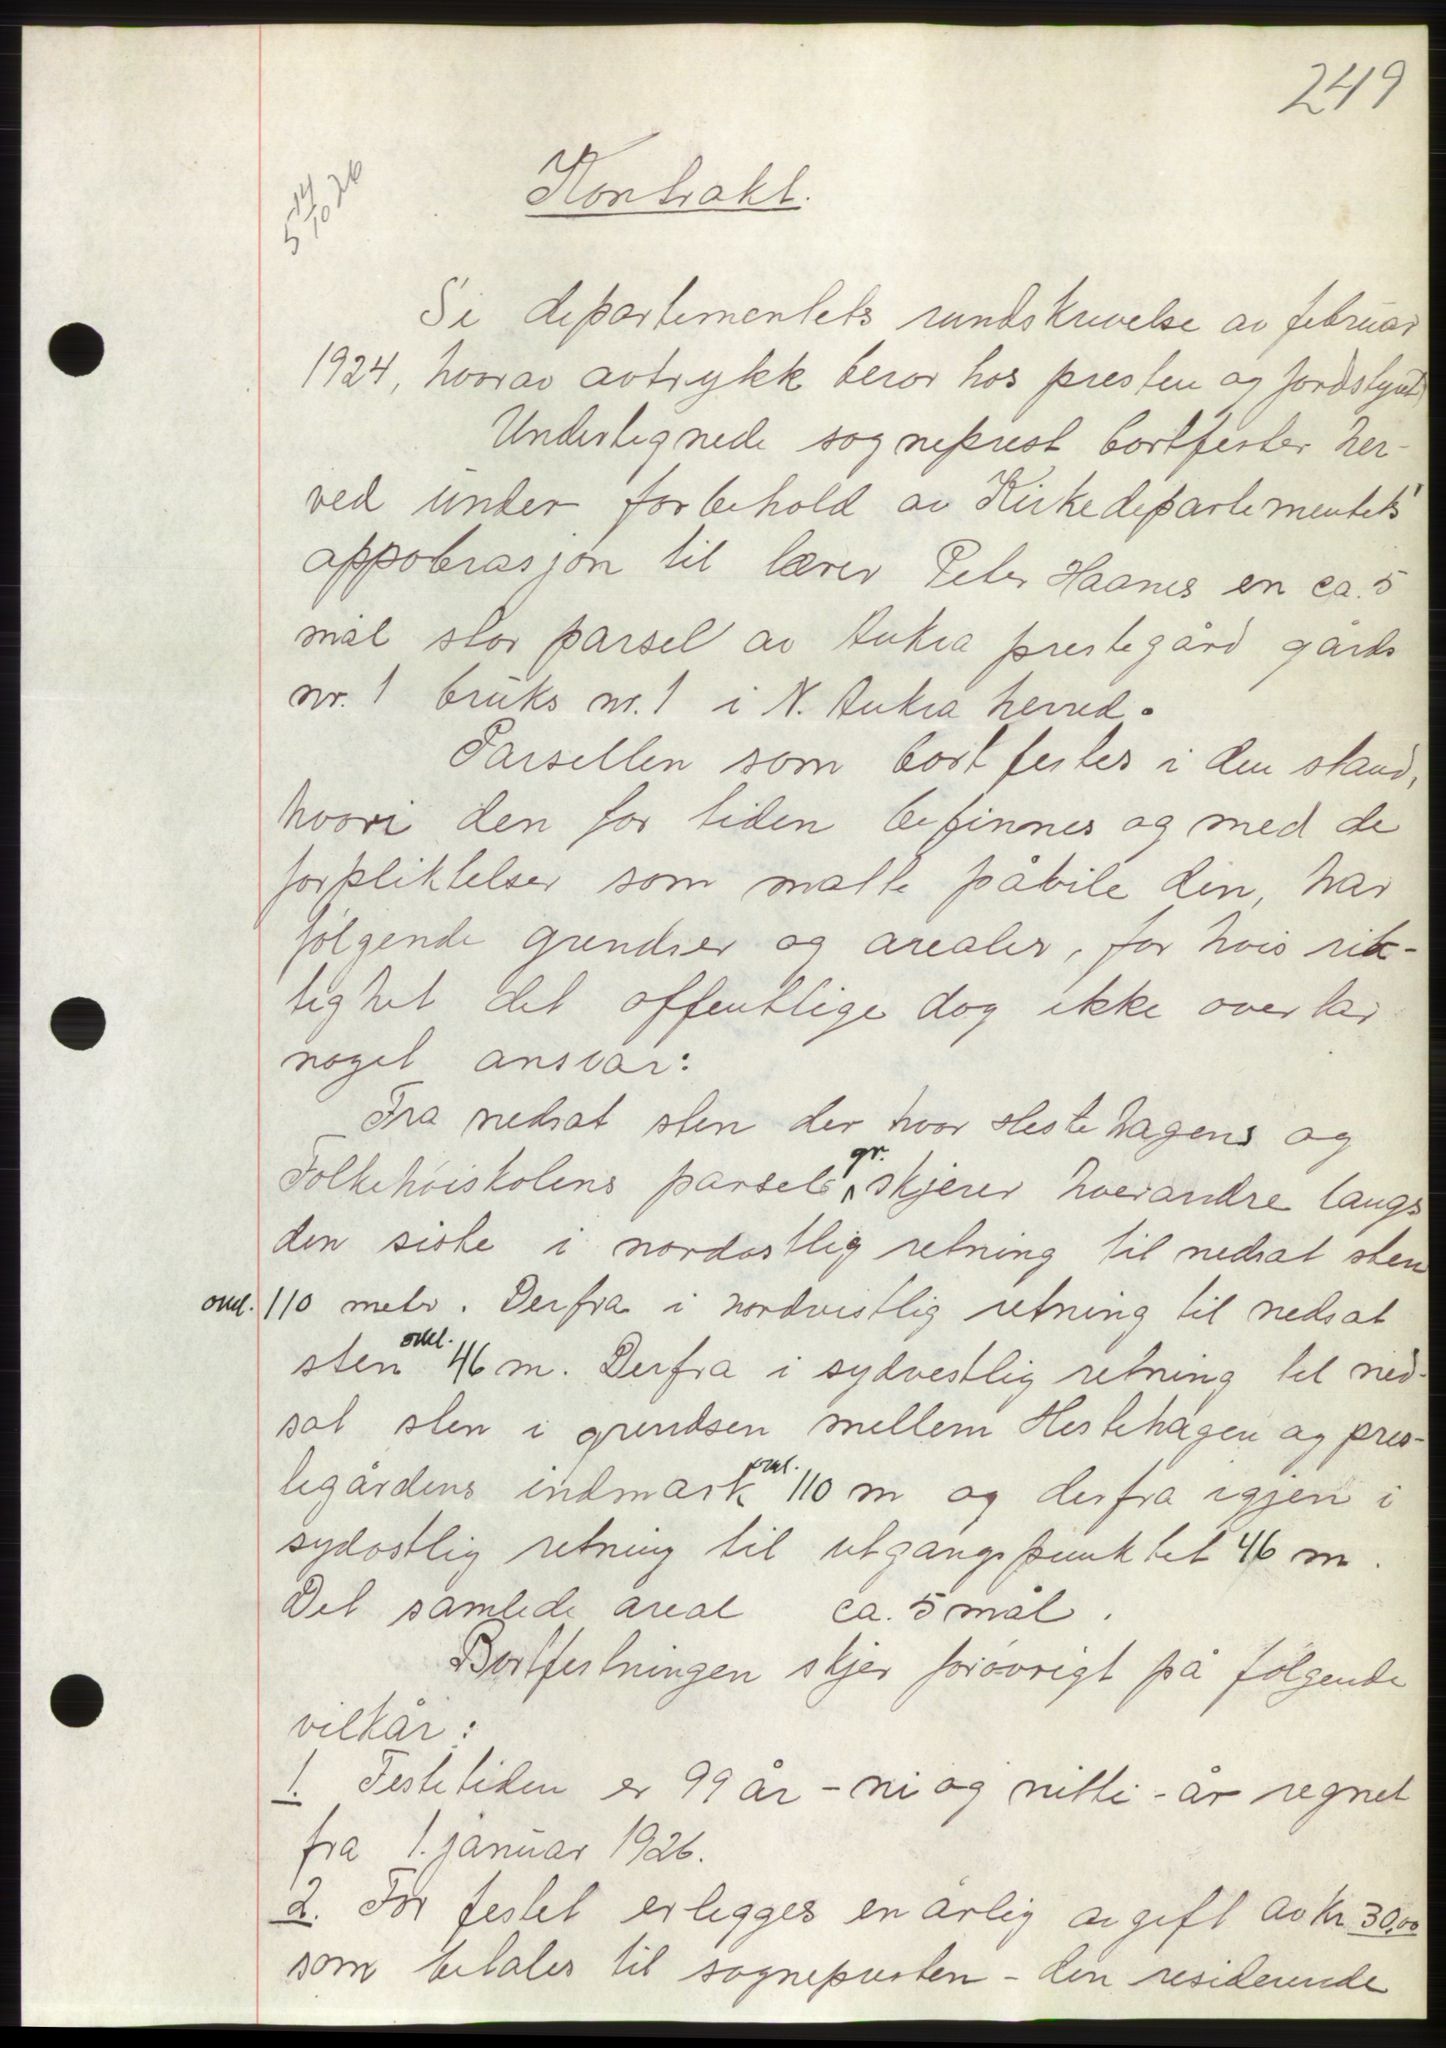 249
5 14/10 26
Kontrakt.
Si departementets rundskrivelse av februar
1924, hvorav avtrykk beror hos presten og jordstyret
Undertegnede sogneprest bortfester her-
ved under forbehold av Kirkedepartementets'
appobrasjon til lærer Peter Haanes en ca. 5
mål stor parsel av Aukra prestegård gårds
nr. 1 bruks nr. 1 i N. Aukra herred.
Parsellen som bortfestes i den stand,
hvori den for tiden befinnes og med de
forpliktelser som matte påbile den, har
følgende grendser og arealer, for hvis rik-
tighet det offentlige dog ikke overtar
noget ansvar:
Fra nedsat sten der hvor Hestehagens og
gr.
Folkehøiskolens parsels skjerer hverandre langs
den siste i nordøstlig retning til nedsat sten
oml. 110 metr. Derfra i nordvestlig retning til nedsat
oml.
sten 46 m. Derfra i sydvestlig retning til ned-
sat sten i grendsen mellem Hestehagen og pres-
oml.
tegårdens indmark 110 m og derfra igjen i
sydøstlig retning til utgangspunktet 46 m.
Det samlede areal ca. 5 mål.
Bortfestningen skjer forøvrigt på følgende
vilkår:
1. Festetiden er 99 år - ni og nitti - år regnet
fra 1. januar 1926.
2. For festet erlegges en årlig avgift av kr 30,00
som betales til sognepresten - den residerende